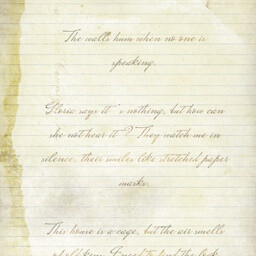 The walls hum when no one is
speaking.
Gloria says it's nothing, but how can
she not hear it? They watch me in
silence, their smiles like stretched paper
masks.
This house is a cage, but the air smells